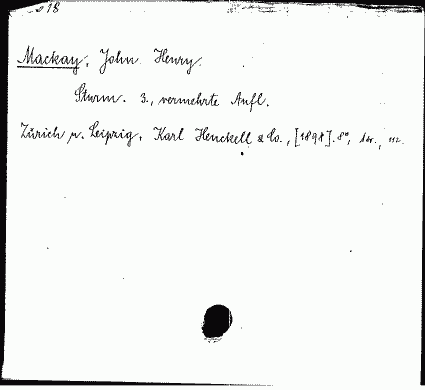 18
Mackay, John Henry.
Sturm. 3., vermehrte Aufl.
Zürich u. Leipzig, Karl Henckell & Co., [1898]. 8°,